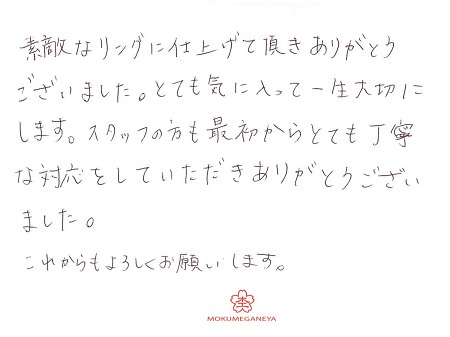 素敵なリングに仕上げて頂きありがとう
ございました。とても気に入って一生大切に
します。スタッフの方も最初からとても丁寧
な対応をしていただきありがとうござい
ました。
これからもよろしくお願いします。
MOKUMEGANEYA